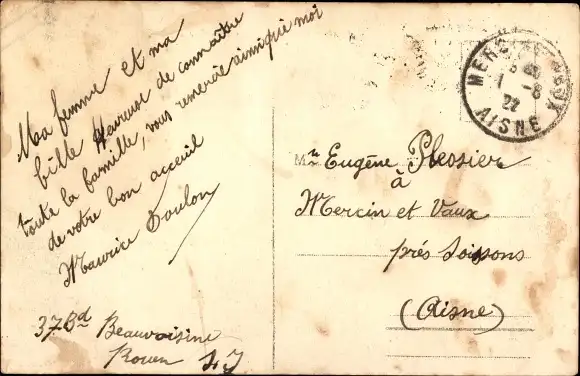 Ma femme et ma
fille Heureuse de connaître
toute la famille, vous remercie ainsi que moi
de votre bon acceuil
Maurice Doulon
37 Bd
Beauvoisine
Rouen
MERCIN
22
AISNE
Mr Eugène Plessier
à
Mercin et Vaux
près Soissons
(Aisne)